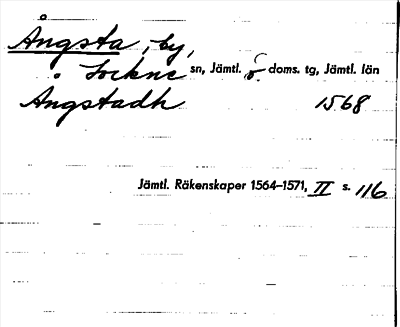 Ångsta, by,
Lockne sn, Jämtl. ö. doms. tg, Jämtl. län
Ångstadh 1568
Jämtl. Räkenskaper 1564–1571, II s. 116